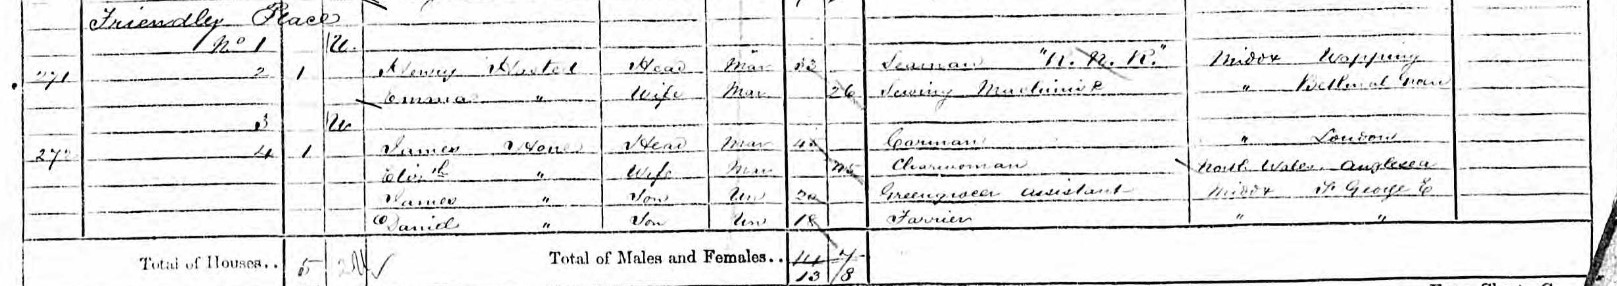 Friendly Place
No 1 U.
271 2 1 Henry Head Mar 32 Seaman "R. N. R." Middx Wapping
Emma " Wife Mar 26 Sewing Machinist " Bethnal Green
3 U
272 4 1 James Head Mar Carman " London
Elizth " Wife Mar 45 Charwoman North Wales. Anglesea
James " Son Un 20 Greengrocer assistant Middx St George E
Daniel " Son Un 18 Farrier " "
Total of Houses.. 5 2U Total of Males and Females.. 14 7
13 8